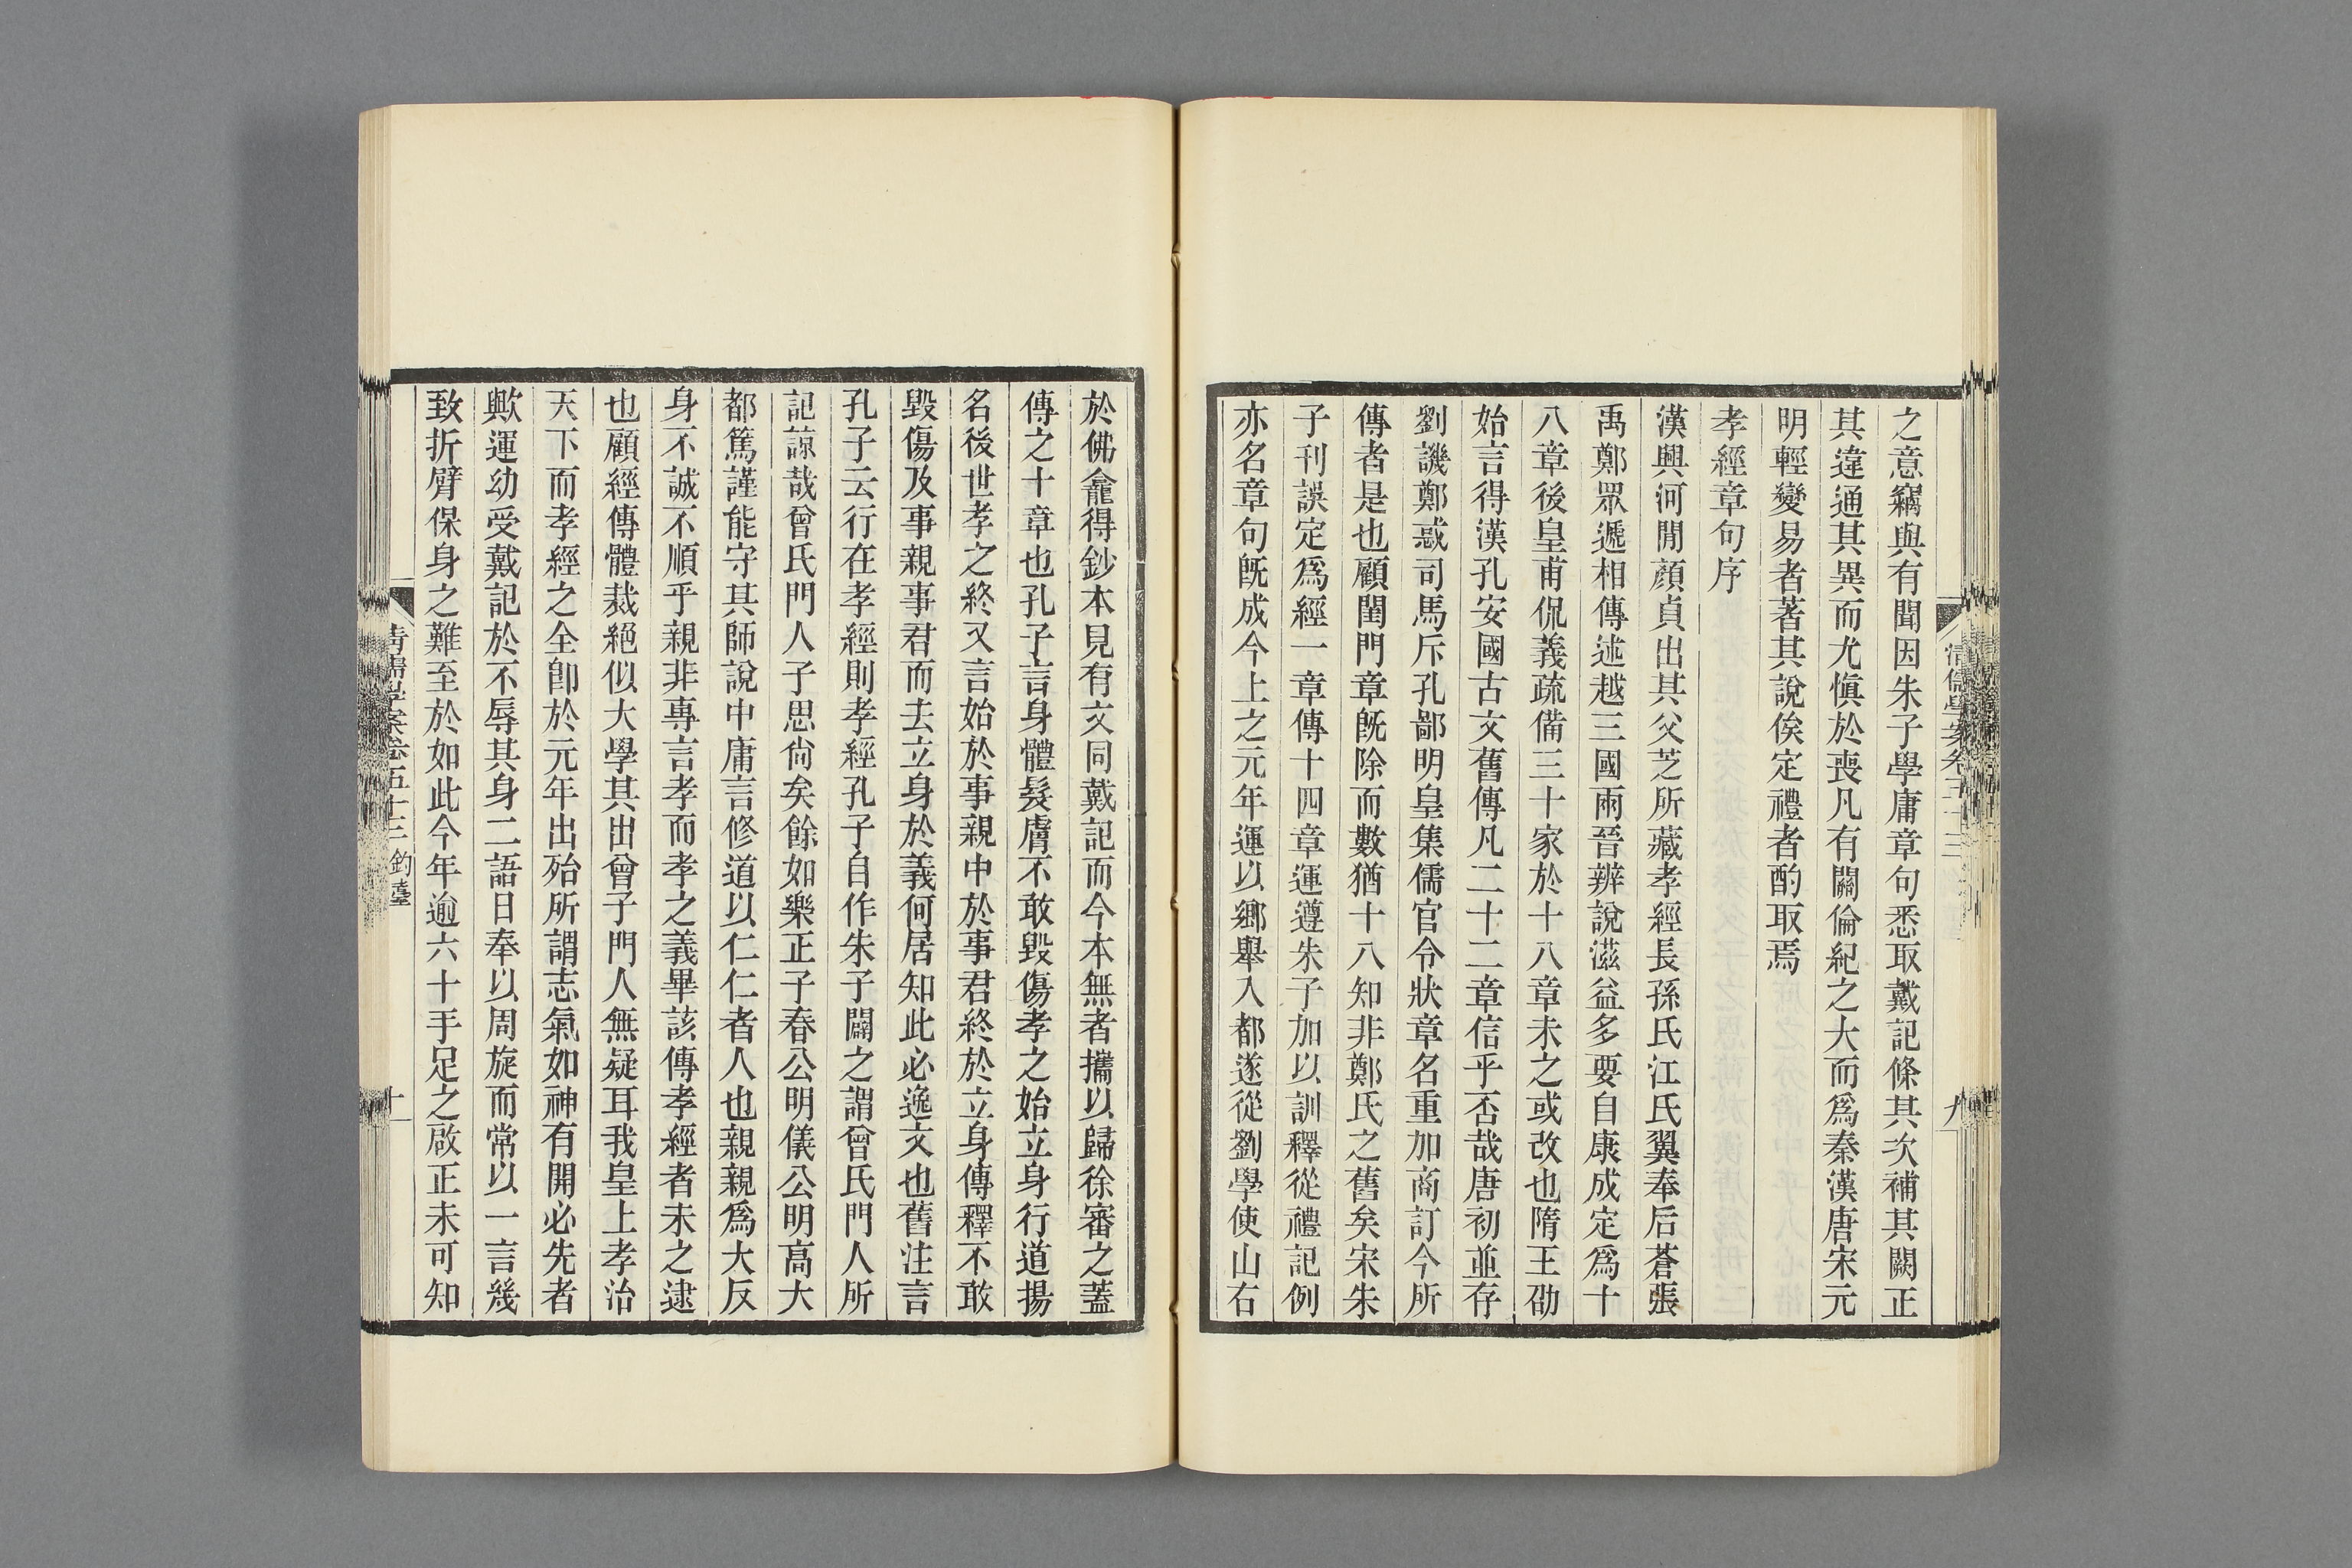 之意竊與有聞因朱子學庸章句悉取戴記條其次補其闕正
其違通其異而尤愼於喪凡有關倫紀之大而爲秦漢唐宋元
明輕變易者著其說俟定禮者酌取焉
孝經章句序
漢興河閒顏貞出其父芝所藏孝經長孫氏江氏翼奉后蒼張
禹鄭眾遞相傳述越三國兩晉辨說滋益多要自康成定爲十
八章後皇甫侃義疏備三十家於十八章未之或改也隋王劭
始言得漢孔安國古文舊傳凡二十二章信乎否哉唐初並存
劉譏鄭惑司馬斥孔鄙明皇集儒官令狀章名重加商訂今所
傳者是也顧閨門章旣除而數猶十八知非鄭氏之舊矣宋朱
子刊誤定爲經一章傳十四章運遵朱子加以訓釋從禮記例
亦名章句旣成今上之元年運以鄉舉入都遂從劉學使山右
於佛龕得鈔本見有文同戴記而今本無者攜以歸徐審之蓋
傳之十章也孔子言身體髮膚不敢毀傷孝之始立身行道揚
名後世孝之終又言始於事親中於事君終於立身傳釋不敢
毀傷及事親事君而去立身於義何居知此必逸文也舊注言
孔子云行在孝經則孝經孔子自作朱子闢之謂曾氏門人所
記諒哉曾氏門人子思尙矣餘如樂正子春公明儀公明高大
都篤謹能守其師說中庸言修道以仁仁者人也親親爲大反
身不誠不順乎親非專言孝而孝之義畢該傳孝經者未之逮
也顧經傳體裁絕似大學其出曾子門人無疑耳我皇上孝治
天下而孝經之全卽於元年出殆所謂志氣如神有開必先者
歟運幼受戴記於不辱其身二語日奉以周旋而常以一言幾
致折臂保身之難至於如此今年逾六十手足之啟正未可知
清儒學案卷五十三 鈞臺
十